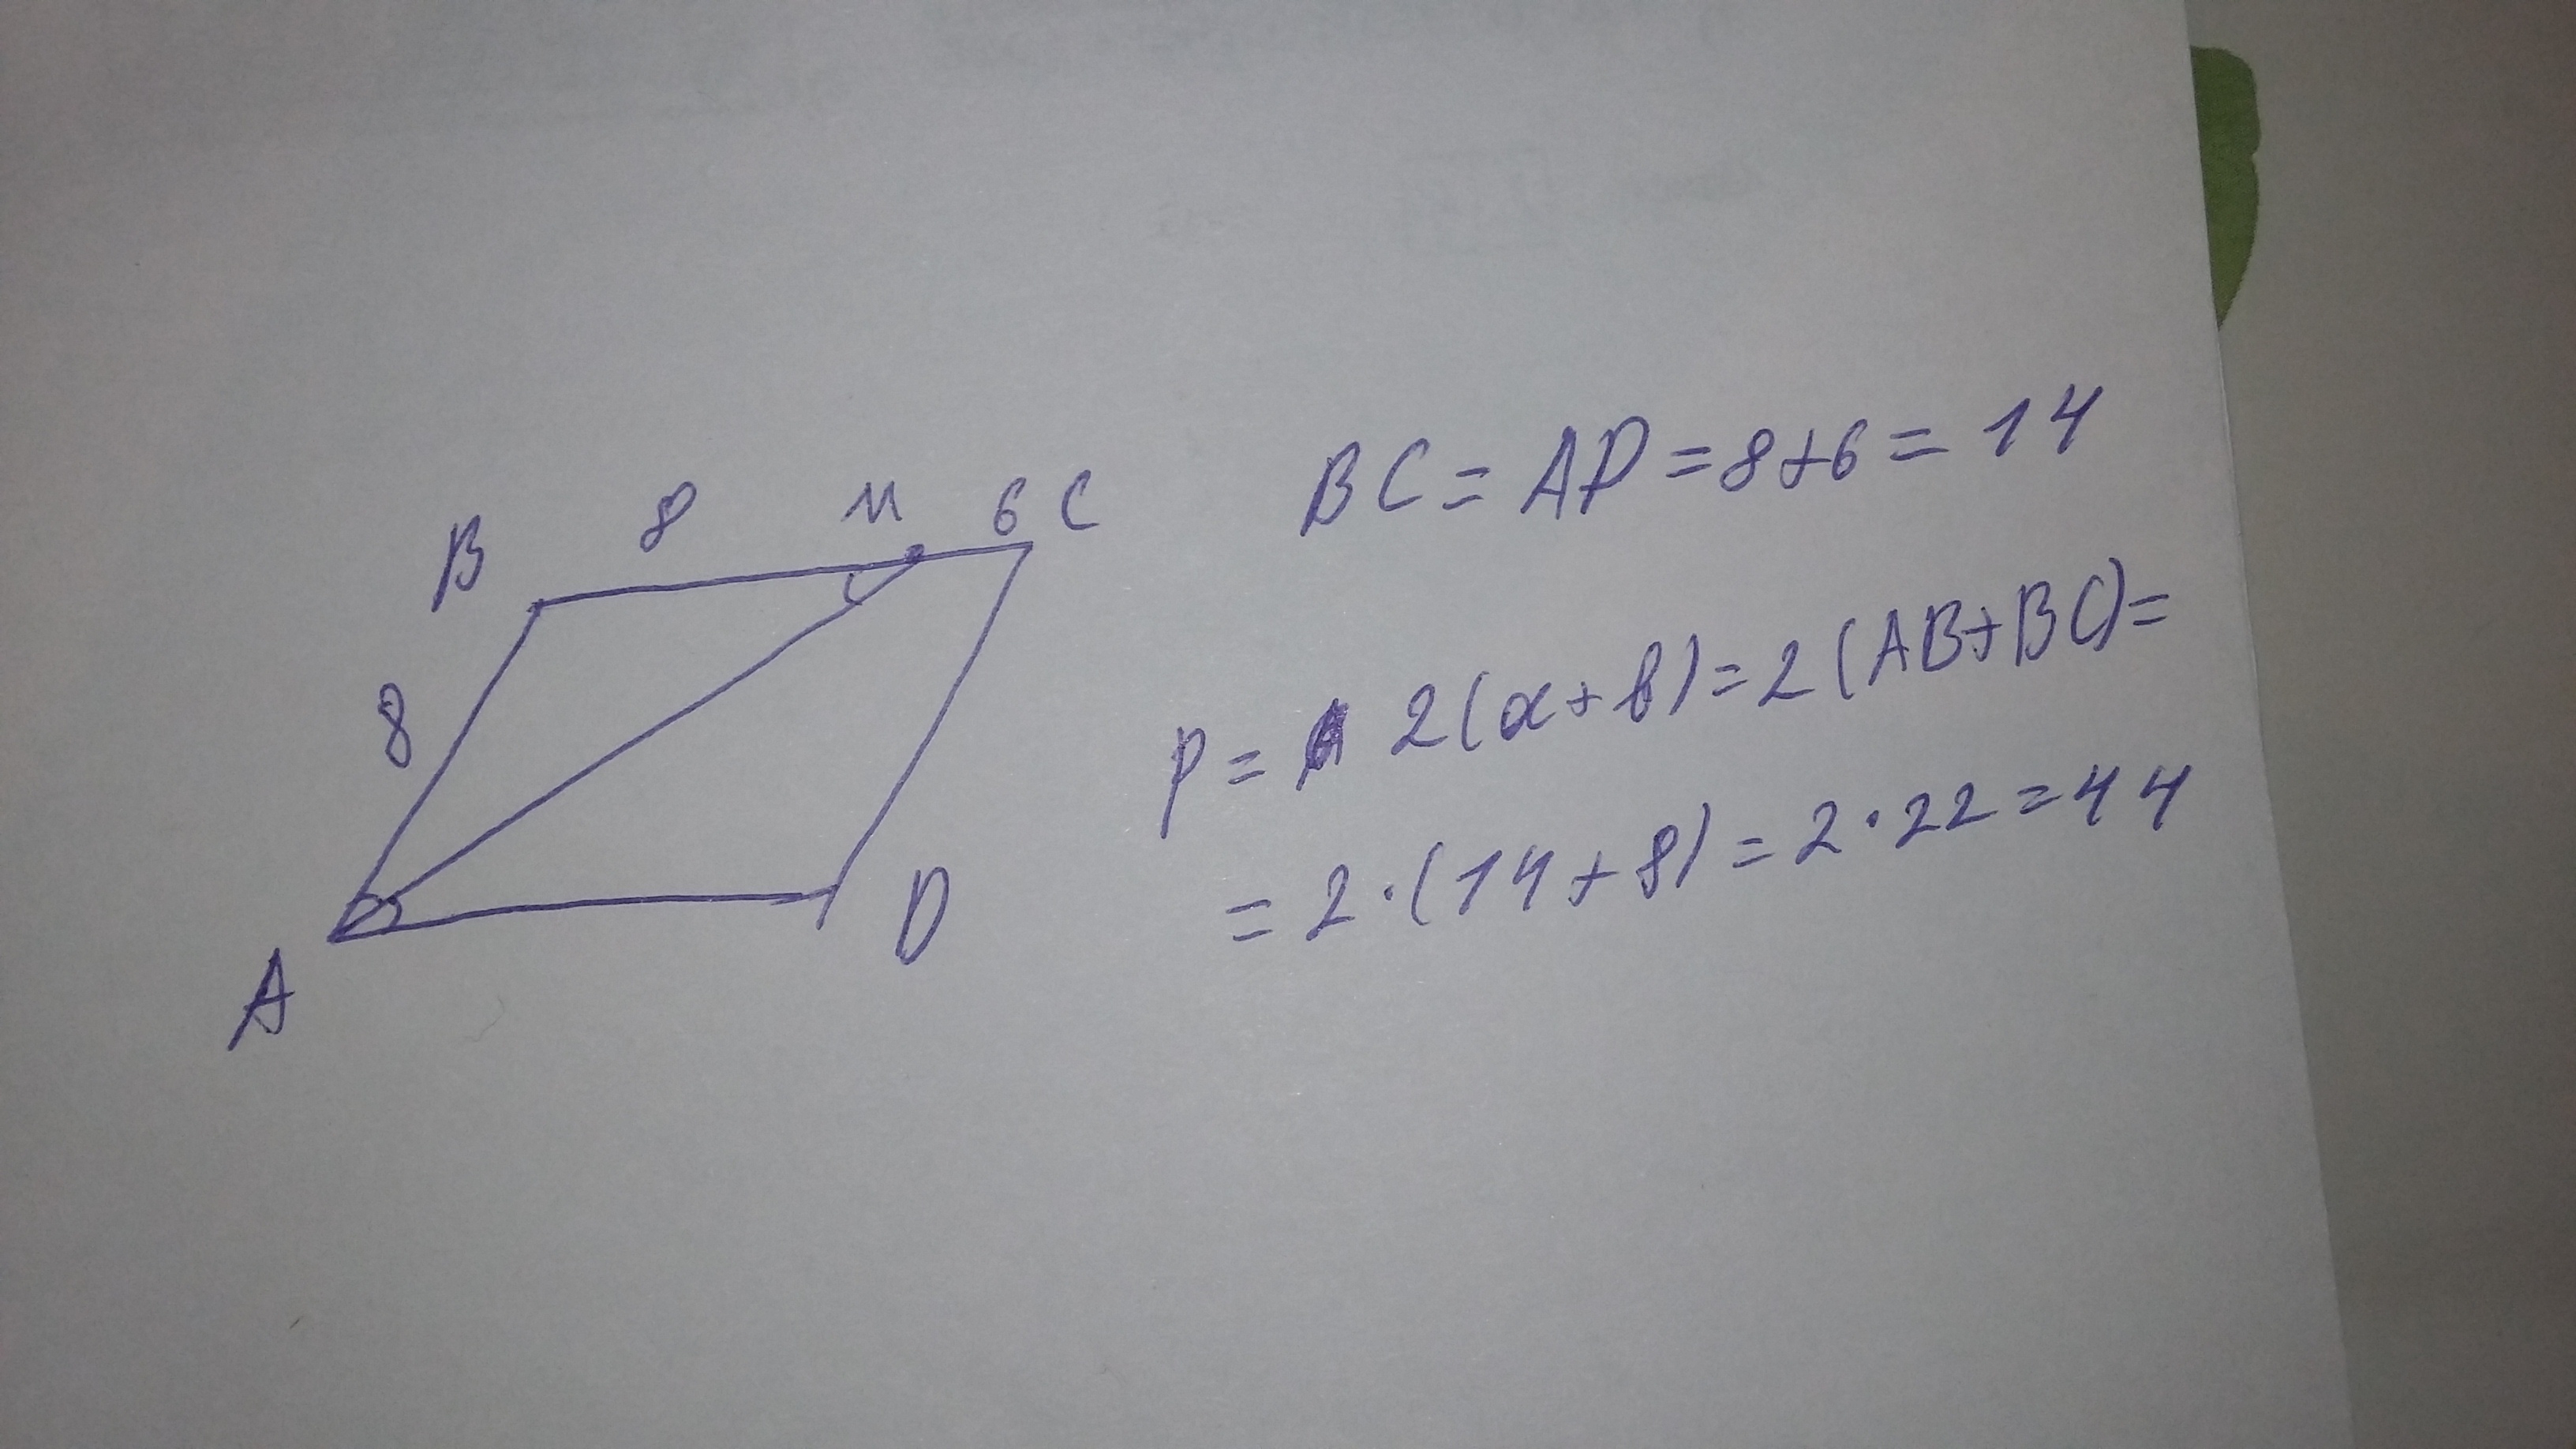 B 8 M 6 C
8
A D
BC = AD = 8+6 = 14
P = 2(a+b) = 2(AB+BC) =
= 2·(14+8) = 2·22 = 44